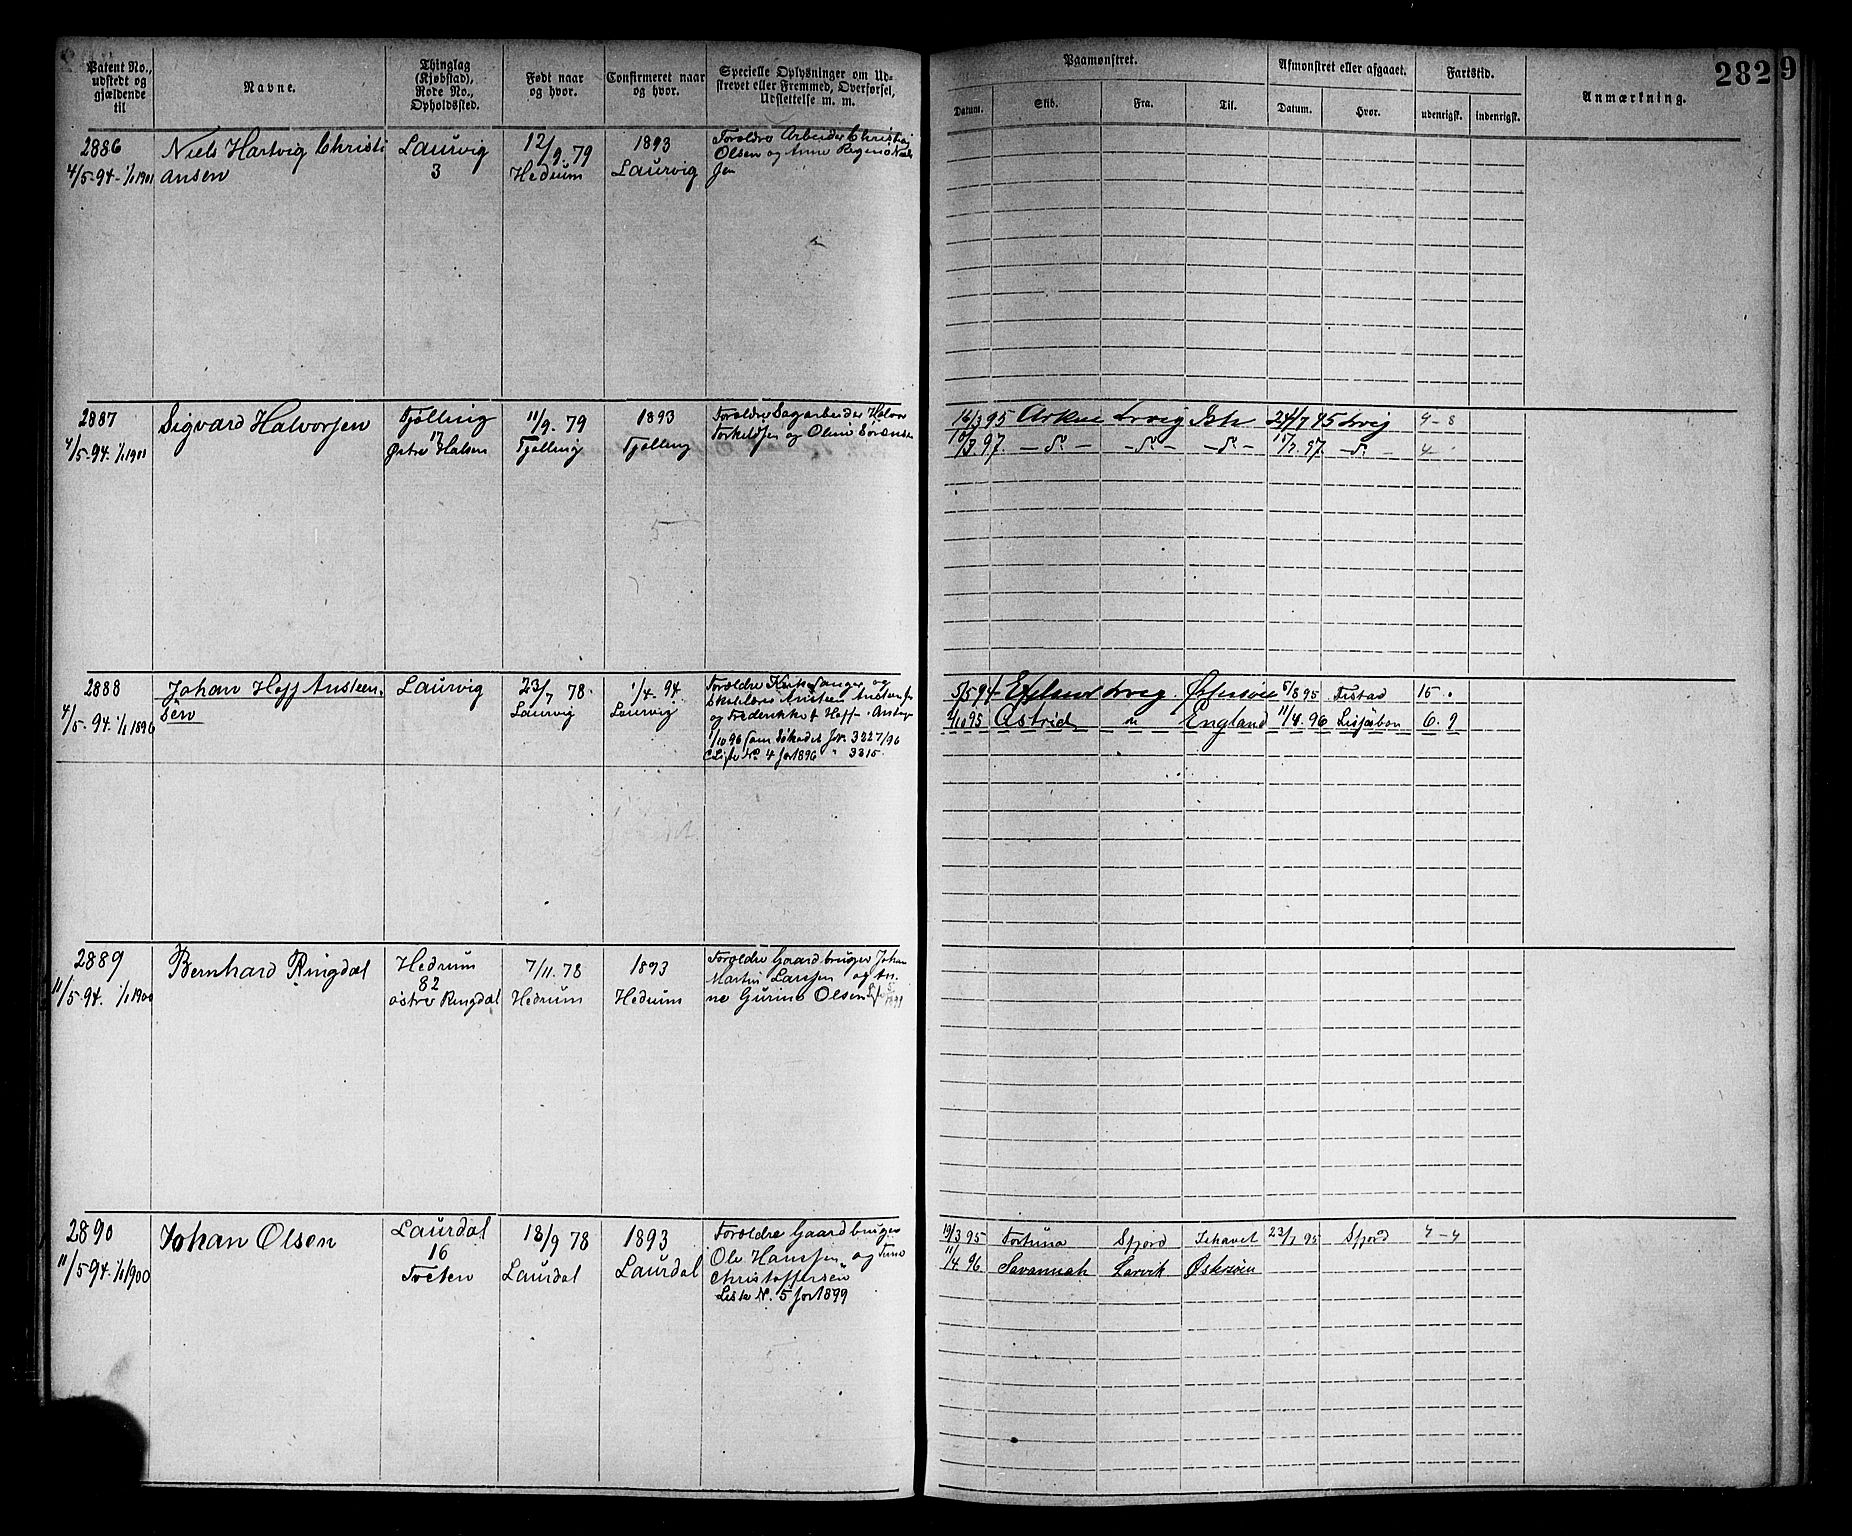 Patent No., udstedt og gjældende til
Navne.
Thinglag (Kjøbstad), Rode No., Opholdssted.
Født naar og hvor.
Confirmeret naar og hvor.
Specielle Oplysninger om Udskrevet eller Fremmed, Overførsel, Udslettelse m. m.
Paamønstret.
Afmønstret eller afgaaet.
Fartstid.
Anmærkning.
282
9
Datum.
Skib.
Fra.
Til.
Datum.
Hvor.
udenrigsk.
indenrigsk.
2886
4/5-94-1/1 1901
Niels Hartvig Christi
ansen
Laurvig
3
12/9. 79
Hedrum
1893
Laurvig
Forældre Arbeider
Olsen og Anne
2887
4/5-94. 1/1 1901
Sigvard Halvorsen
Fjølling
17
Østre Halsen
11/9. 79
Tjølling
1893
Tjølling
Forældre Sagarbeider Halvor
Torkeldsen og Oline Sørensen
16/3 95 Arken Lrvig Ish 24/7 95 Lrvig 4-8
18/3. 97. - D° - - D° - - D° - 18/7. 97. - D° - 4
2888
4/5-94. 1/1 1896
Johan Hoff Ansteen
sen
Laurvig
23/7 78.
Laurvig
1/4. 94.
Laurvig
Forældre og
og Frederikke f Hoff
1/10 96 som Søkadet Jr. 3227/96
Liste N° 4 for 1896 " 3315.
5/5 94 Lrvig. 5/8 95 15
95 Astrid England 11/4. 96 Lissabon 6. 9
2889
11/5-94. 1/1 1900
Bernhard Ringdal
Hedrum
82
østre Ringdal
7/11. 78
Hedrum
1893
Hedrum
Forældre Gaardbruger Johan
Martin Larssen og An
ne Gurine Olsen
2890
11/5-94. 1/1 1900
Johan Olsen
Laurdal
16
Troten
18/9 78
Laurdal
1893
Laurdal
Forældre Gaardbruger
Ole Hanssen og
Christoffersen
Liste N. 5 for 1899
19/3 95 Fortuna Sfjord Ishavet 23/7 95 Sfjord 4-4
11/4 96 Savannah Larvik Østersøen